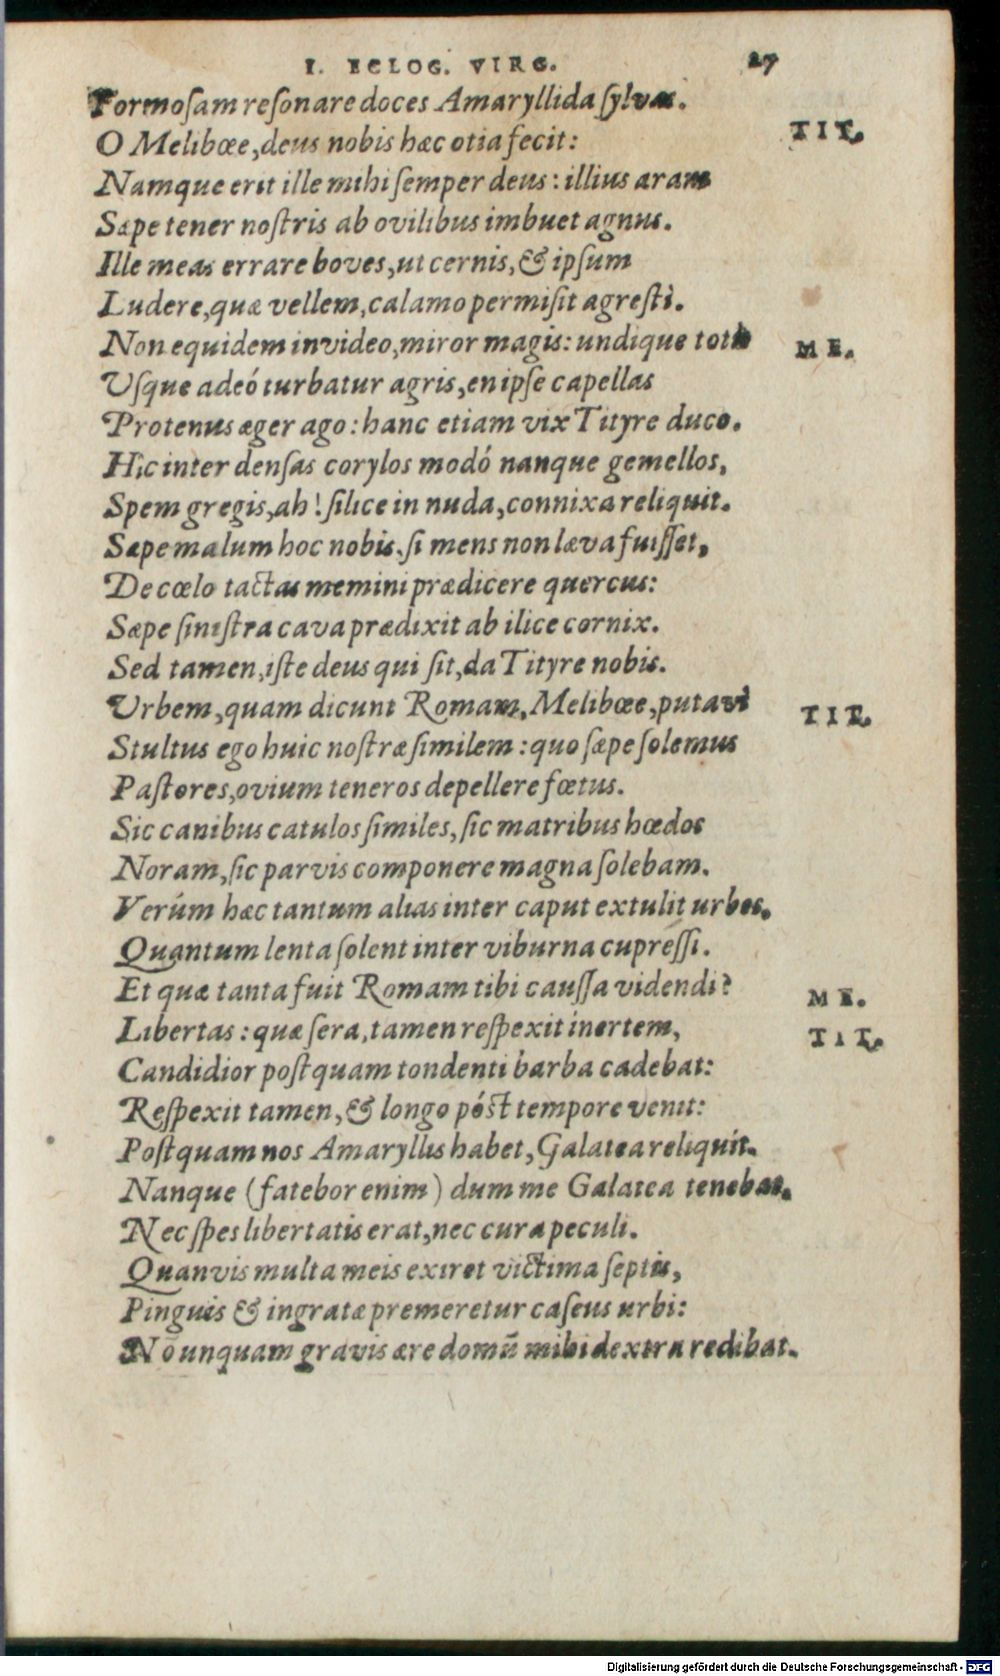 I. ECLOG. VIRG. 27
Formosam resonare doces Amaryllida sylvas.
O Melibœe, deus nobis hæc otia fecit: TIT.
Namque erit ille mihi semper deus: illius aram
Sæpe tener nostris ab ovilibus imbuet agnus.
Ille meas errare boves, ut cernis, & ipsum
Ludere, quæ vellem, calamo permisit agresti.
Non equidem invideo, miror magis: undique totis ME.
Usque adeó turbatur agris, en ipse capellas
Protenus æger ago: hanc etiam vix Tityre duco.
Hic inter densas corylos modó nanque gemellos,
Spem gregis, ah! silice in nuda, connixa reliquit.
Sæpe malum hoc nobis, si mens non læva fuisset,
De cœlo tactas memini prædicere quercus:
Sæpe sinistra cava prædixit ab ilice cornix.
Sed tamen, iste deus qui sit, da Tityre nobis.
Urbem, quam dicunt Romam, Melibœe, putavi TIT.
Stultus ego huic nostræ similem: quo sæpe solemus
Pastores, ovium teneros depellere fœtus.
Sic canibus catulos similes, sic matribus hœdos
Noram, sic parvis componere magna solebam.
Verúm hæc tantum alias inter caput extulit urbes,
Quantum lenta solent inter viburna cupressi.
Et quæ tanta fuit Romam tibi caussa videndi? ME.
Libertas: quæ sera, tamen respexit inertem, TIT.
Candidior postquam tondenti barba cadebat:
Respexit tamen, & longo póst tempore venit:
Postquam nos Amaryllis habet, Galatea reliquit.
Nanque (fatebor enim) dum me Galatea tenebat,
Nec spes libertatis erat, nec cura peculi.
Quanvis multa meis exiret victima septis,
Pinguis & ingratæ premeretur caseus urbi:
Nō unquam gravis ære domū mihi dextra redibat.
Digitalisierung gefördert durch die Deutsche Forschungsgemeinschaft - DFG